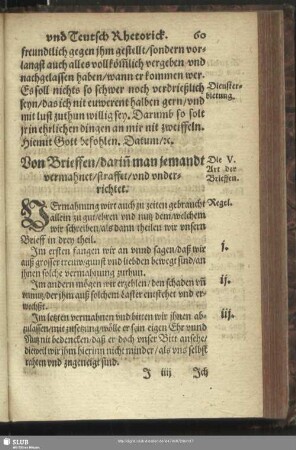 vnd Teutsch Rhetorick. 60
freundtlich gegen jhm gestellt / sondern vor-
langst auch alles vollkom̃lich vergeben vnd
nachgelassen haben / wann er kommen wer.
Es soll nichts so schwer noch verdrießlich
seyn / das ich nit euwerent halben gern / vnd
mit lust zuthun willig sey. Darumb so solt
jr in ehrlichen dingen an mir nit zweiffeln.
Hiemit Gott befohlen. Datum / ꝛc.
Dienster-
bietung.
Von Brieffen / dariñ man jemandt
vermahnet / straffet / vnd vnder-
richtet.
Die V.
Art der
Brieffen.
VErmahnung wirt auch zu zeiten gebraucht
allein zu gut / ehren vnd nutz dem / welchem
wir schreiben / als dann theilen wir vnsern
Brieff in drey theil.
Regel.
Im ersten fangen wir an vnnd sagen / daß wir
auß grosser treuw / gunst vnd liebden bewegt sind / an
jhnen solche vermahnung zuthun.
j.
Im andern mögen wir erzehlen / den schaden vñ
vnnutz / der jhm auß solchem Laster entstehet vnd er-
wechßt.
ij.
Im letzten vermahnen vnd bitten wir jhnen ab-
zulassen / mit zusetzung / wölle er sein eigen Ehr vnnd
Nutz nit bedencken / daß er doch vnser Bitt ansehe /
diewel wir jhm hierinn nicht minder / als vns selbst
rahten vnd zugeneigt sind.
iij.
J iiij Ich
SLUB
Wir führen Wissen.